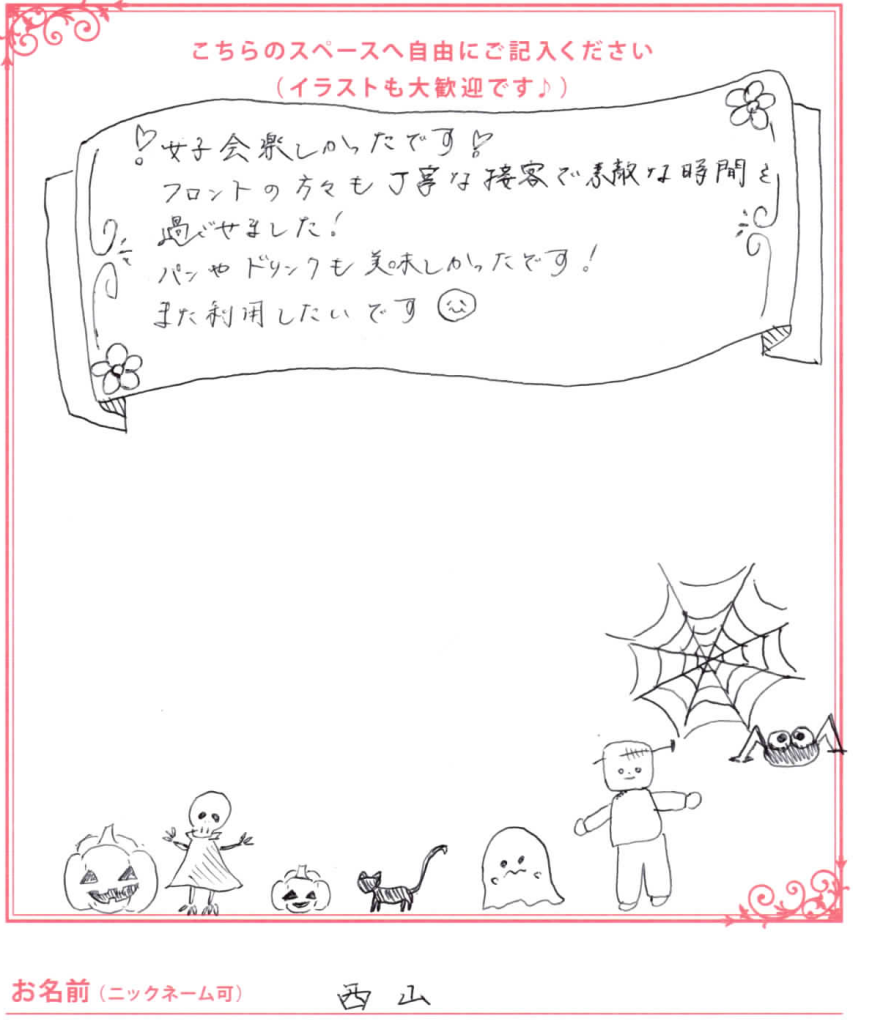 こちらのスペースへ自由にご記入ください
(イラストも大歓迎です♪)
女子会楽しかったです
フロントの方々も丁寧な接客で素敵な時間を
過ごせました!
パンやドリンクも美味しかったです!
また利用したいです
お名前(ニックネーム可)
西山